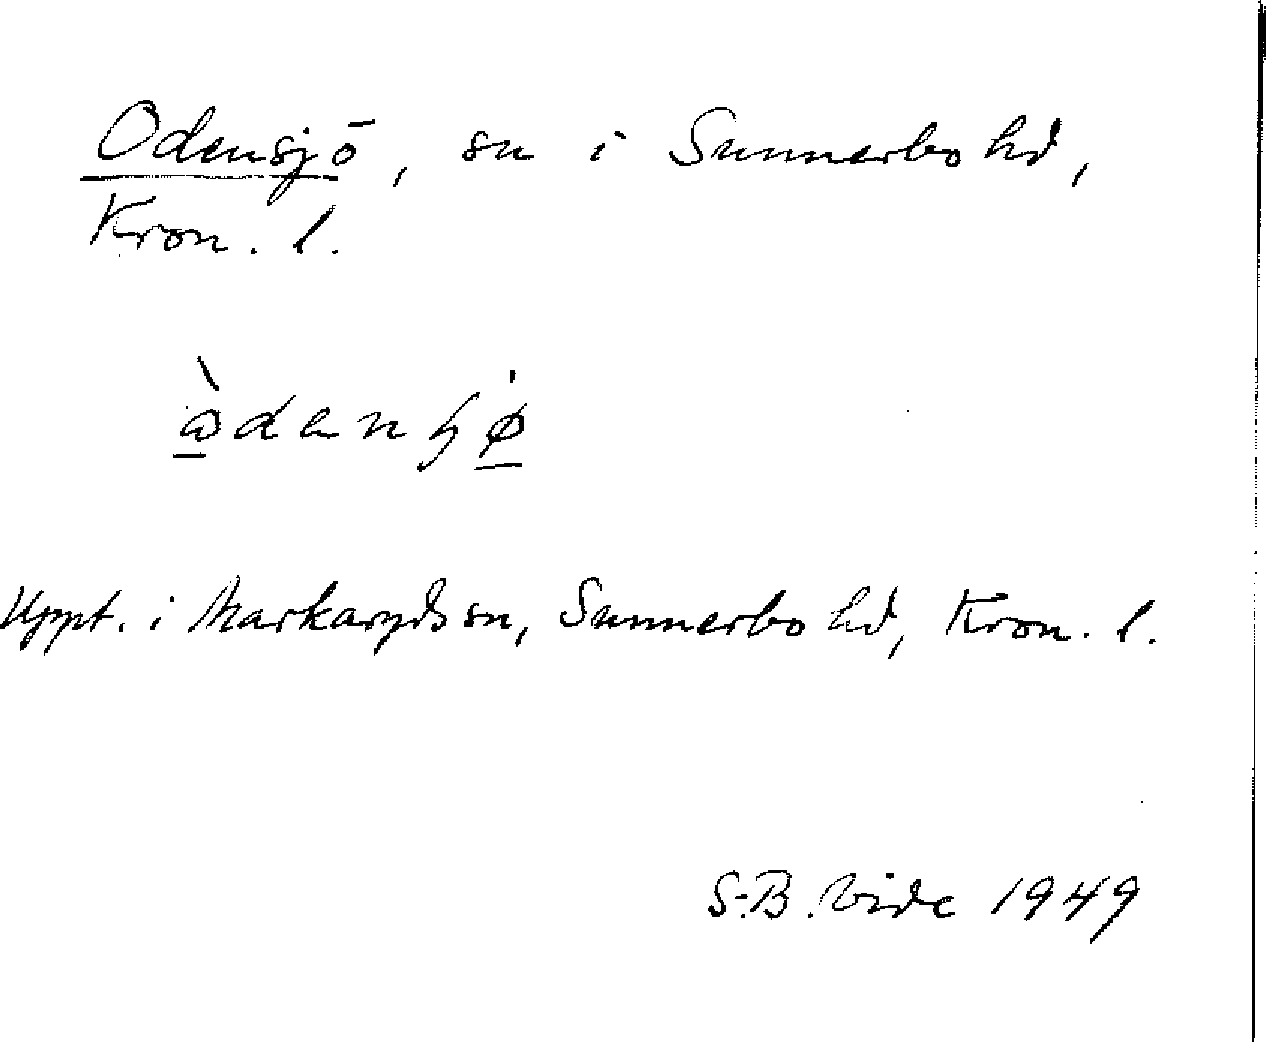 Odensjö, sn i Sunnerbo hd,
Kron. l.
Uppt. i Markaryds sn, Sunnerbo hd, Kron. l.
S.B. Vide 1949